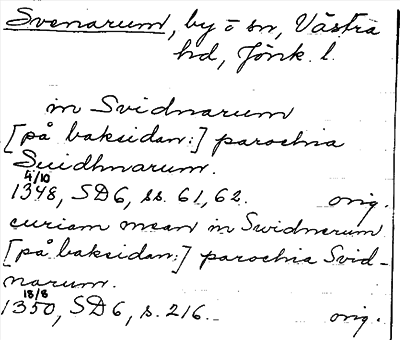 Svenarum, by o sn, Västra
hd, Jönk. l.
in Svidnarum
[på baksidan:] parochia
Suidhnarum.
4/10
1348, SD6, ss. 61, 62. orig.
curiam meam in Swidnerum
[på baksidan:] parochia Svid-
narum.
18/8
1350, SD6, s. 216. orig.